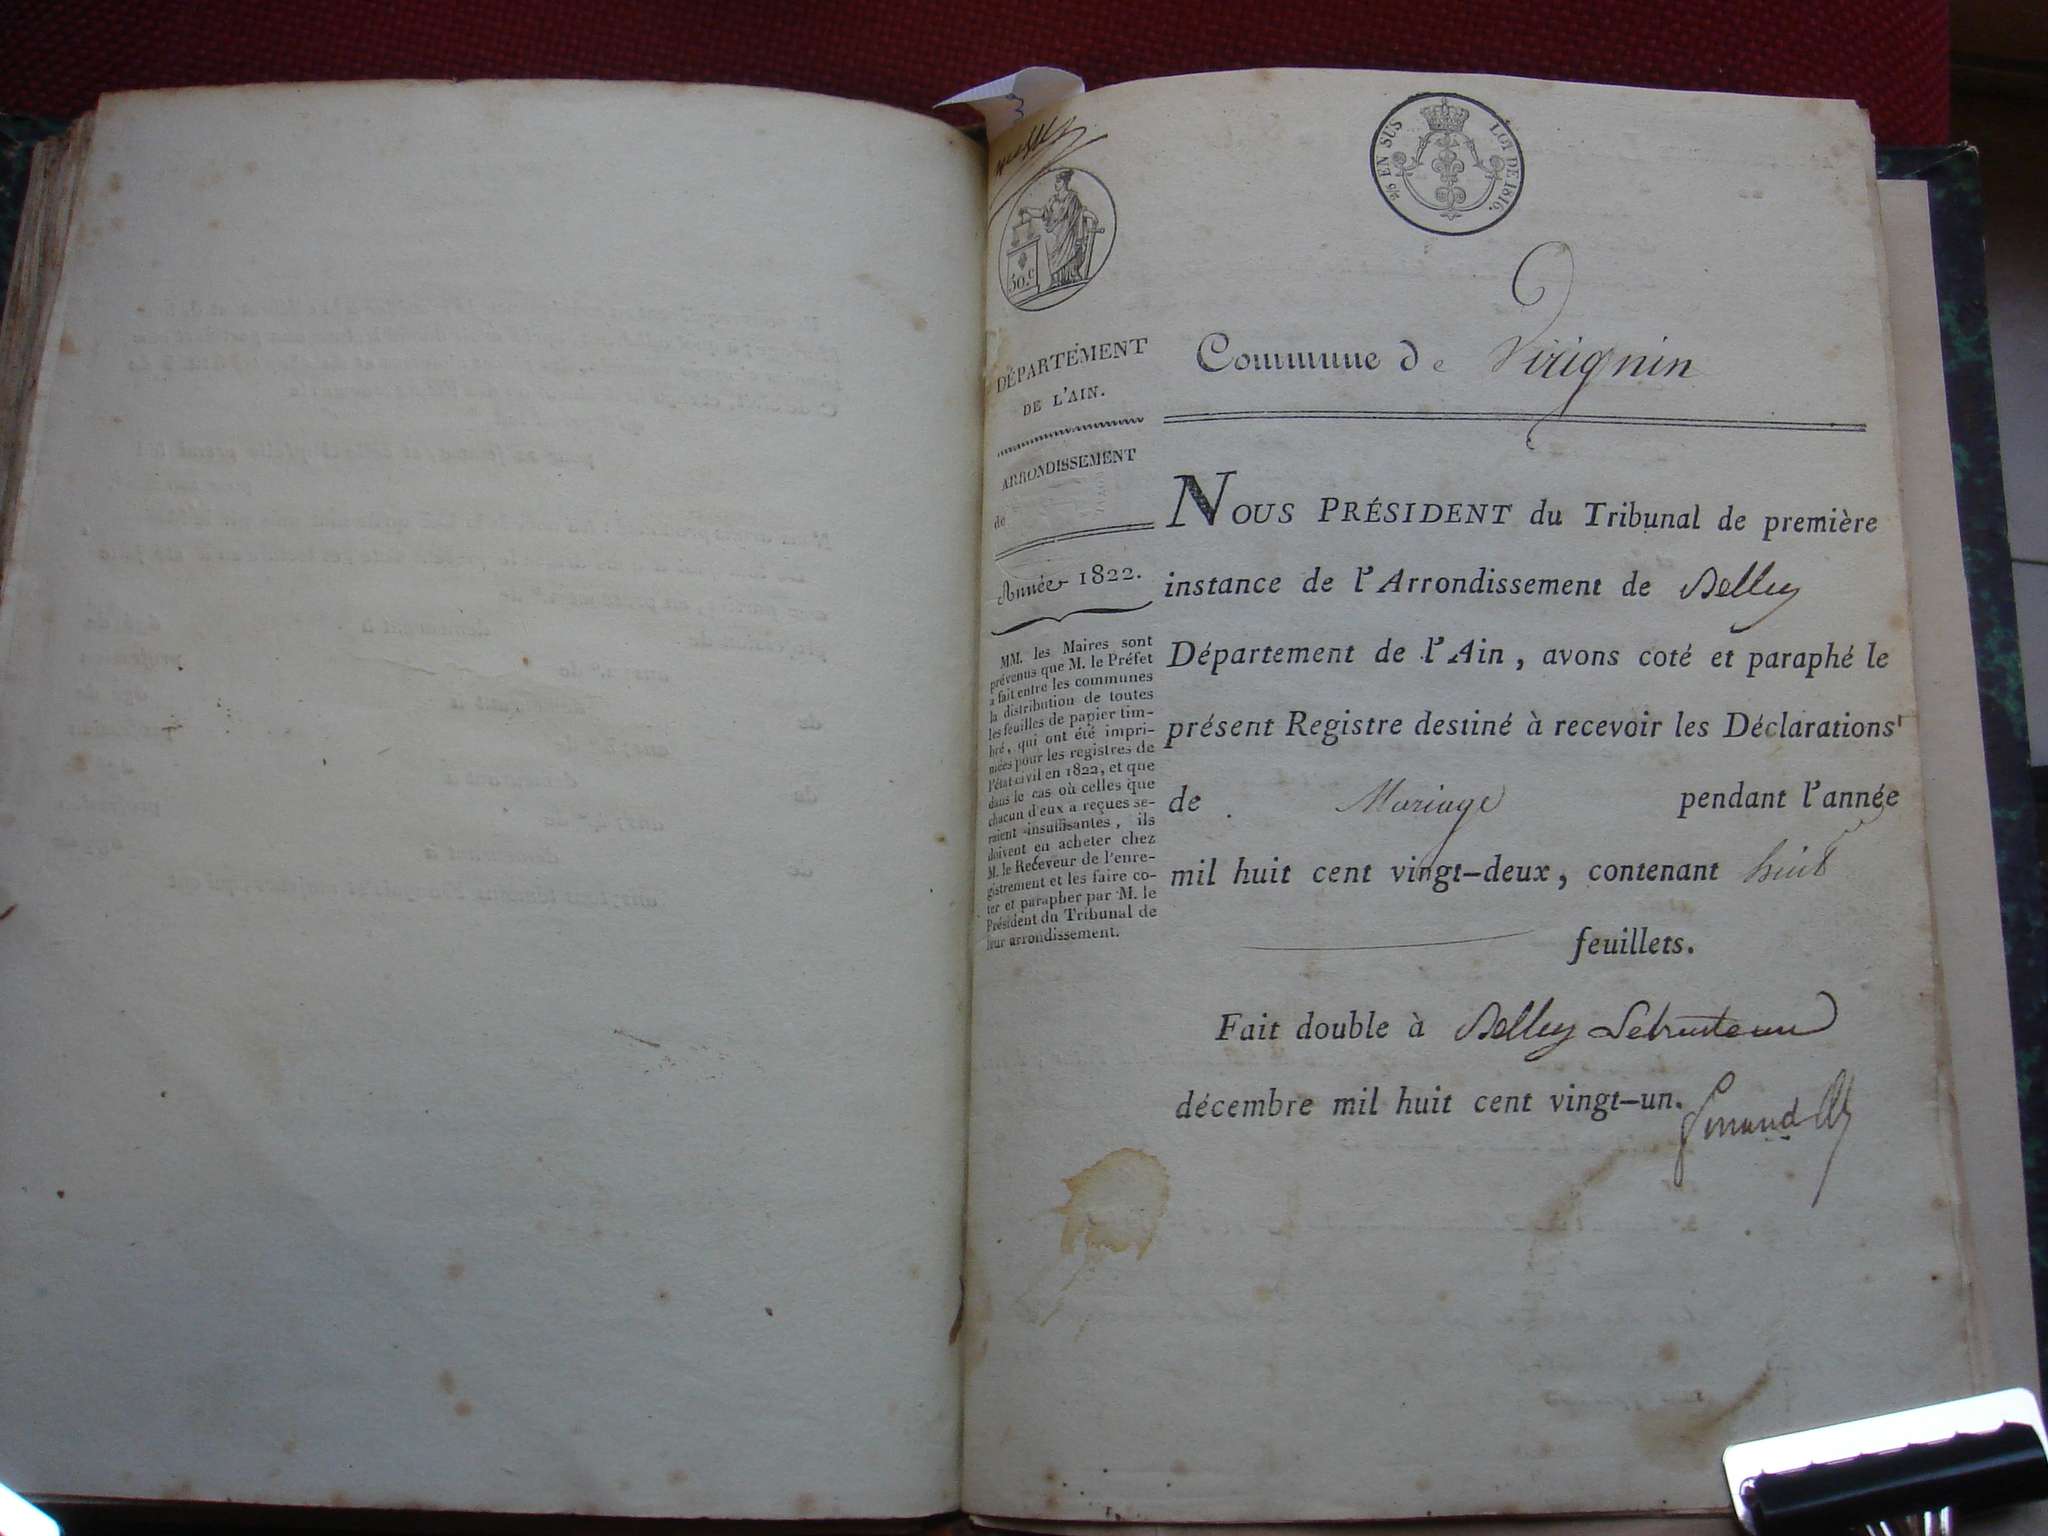 2/6 EN SUS LOI DE 1816.
50.c
DÉPARTEMENT
DE L'AIN.
ARRONDISSEMENT
de
Année 1822.
MM. les Maires sont
prévenus que M. le Préfet
a fait entre les communes
la distribution de toutes
les feuilles de papier tim-
bré, qui ont été impri-
mées pour les registres de
l'état civil en 1822, et que
dans le cas où celles que
chacun d'eux a reçues se-
raient insuffisantes, ils
doivent en acheter chez
M. le Receveur de l'enre-
gistrement et les faire co-
ter et parapher par M. le
Président du Tribunal de
leur arrondissement.
Commune de Virignin
NOUS PRÉSIDENT du Tribunal de première
instance de l'Arrondissement de Belley
Département de l'Ain, avons coté et paraphé le
présent Registre destiné à recevoir les Déclarations
de Mariage pendant l'année
mil huit cent vingt-deux, contenant huit
feuillets.
Fait double à Belley Le
décembre mil huit cent vingt-un.